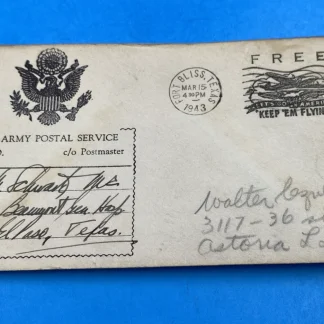 FREE
FORT BLISS, TEXAS
MAR 15
4 PM
1943
KEEP 'EM FLYIN
ARMY POSTAL SERVICE
c/o Postmaster
Schwartz
Beaumont Gen Hosp
El Paso, Texas.
Walter
3117-36
Astoria L